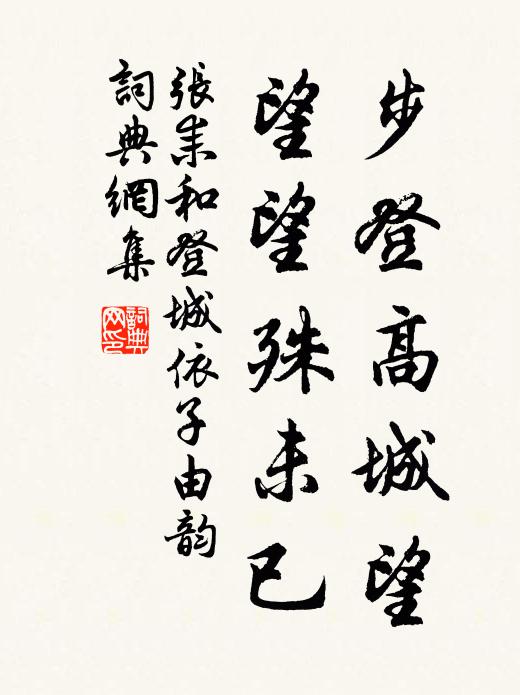 步登高城望
望望殊未已
張耒和登城依子由韵
詞典網集
詞典
网印